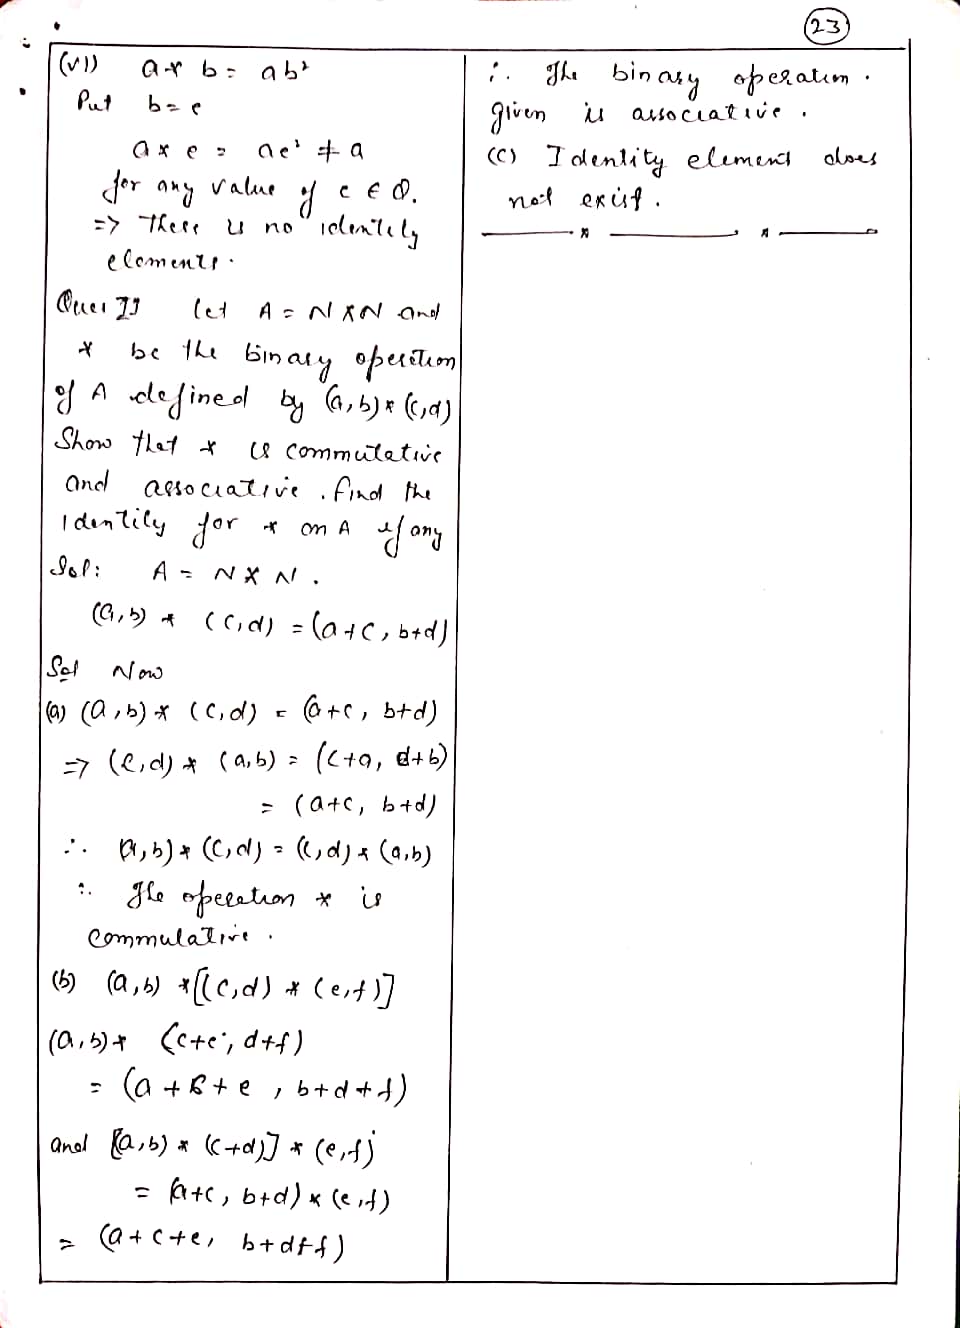 23
(VI) a * b = ab²
Put b = e
a * e = ae² ≠ a
for any value of e ∈ Q.
=> There is no identity
elements.
Ques 11 let A = N X N and
* be the binary operetion
of A defined by (a,b) * (c,d)
Show that * is commutative
and associative. find the
Identity for * on A if any
Sol: A = N X N.
(a,b) * (c,d) = (a+c, b+d)
Sol Now
(a) (a,b) * (c,d) = (a+c, b+d)
=> (c,d) * (a,b) = (c+a, d+b)
= (a+c, b+d)
∴ (a,b) * (c,d) = (c,d) * (a,b)
∴ The operation * is
commutative.
(b) (a,b) * [(c,d) * (e,f)]
(a,b) * (c+e, d+f)
= (a+c+e, b+d+f)
and [(a,b) * (c+d)] * (e,f)
= (a+c, b+d) * (e,f)
= (a+c+e, b+d+f)
∴ The binary operation
given is associative.
(C) Identity element does
not exist.